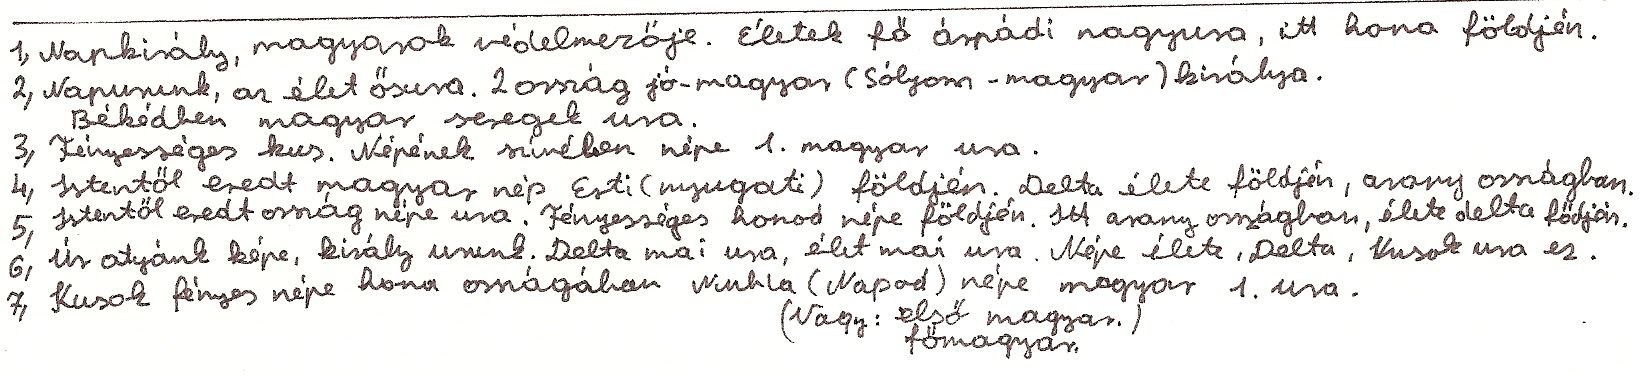 1, Napkirály, magyarok védelmezője. Életek fő árpádi nagyura, itt hona földjén.
2, Napurunk, az élet ősura. 2 ország jó-magyar (Sólyom-magyar) királya.
Békédben magyar seregek ura.
3, Fényességes kus. Népének színében népe 1. magyar ura.
4, Istentől eredt magyar nép Esti (nyugati) földjén. Delta élete földjén, arany országban.
5, Istentől eredt ország népe ura. Fényességes honod népe földjén. Itt arany országban, élete delta födjén.
6, Úr atyánk képe, király urunk. Delta mai ura, élet mai ura. Népe élete, Delta, Kusok ura ez.
7, Kusok fényes népe hona országában Nuhla (Napod) népe magyar 1. ura.
(Vagy: első magyar.)
főmagyar.